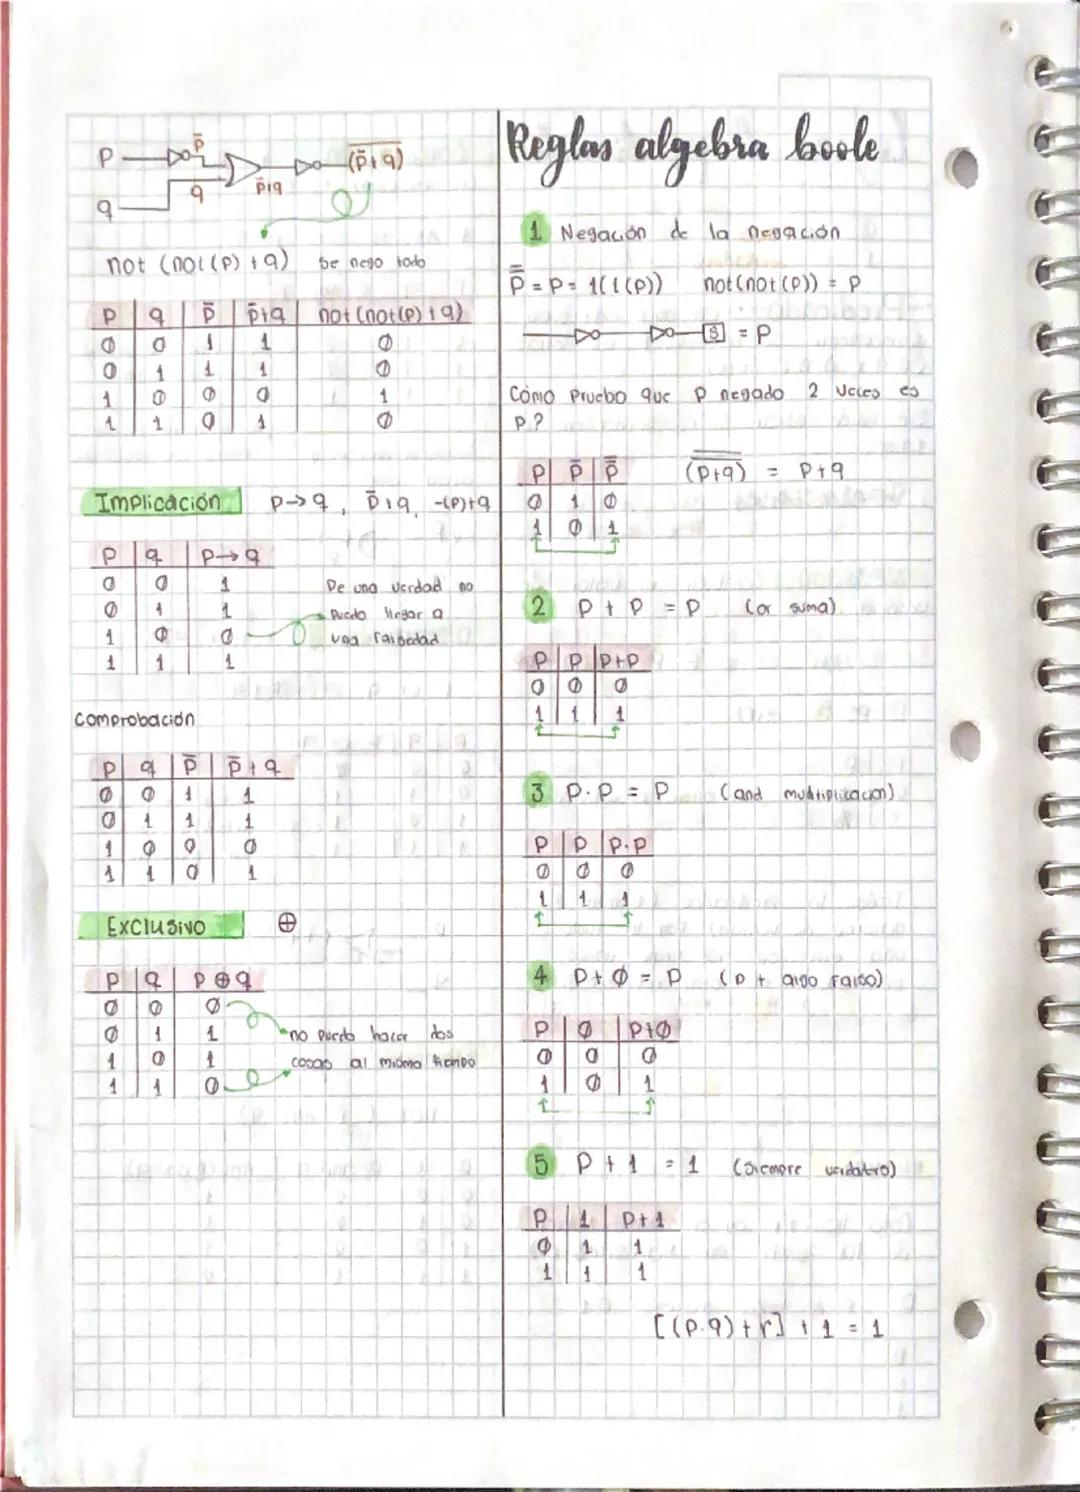 P
p̄
q
q
p̄+q
(p̄+q)‾
not (not(P)+q) Se nego todo
P q p̄ p̄+q not(not(p)+q)
0 0 1 1 0
0 1 1 1 0
1 0 0 0 1
1 1 0 1 0
Implicación P→q, p̄+q, -(P)+q
P q P→q
0 0 1
0 1 1
1 0 0
1 1 1
De una verdad no
puedo llegar a
una falsedad
Comprobación
P q p̄ p̄+q
0 0 1 1
0 1 1 1
1 0 0 0
1 1 0 1
Exclusivo ⊕
P q P⊕q
0 0 0
0 1 1
1 0 1
1 1 0
no puedo hacer dos
cosas al mismo tiempo
Reglas algebra boole
1 Negación de la negación
p̿ = P = 1(1(P)) not(not(P)) = P
S = P
Cómo Pruebo que P negado 2 veces es
P?
P p̄ p̿
0 1 0
1 0 1
(P+q)̿ = P+q
2 P + P = P (or suma)
P P P+P
0 0 0
1 1 1
3 P·P = P (and multiplicacion)
P P P·P
0 0 0
1 1 1
4 P+0 = P (P + algo falso)
P 0 P+0
0 0 0
1 0 1
5 P + 1 = 1 (Siempre verdadero)
P 1 P+1
0 1 1
1 1 1
[(P·q)+r] + 1 = 1